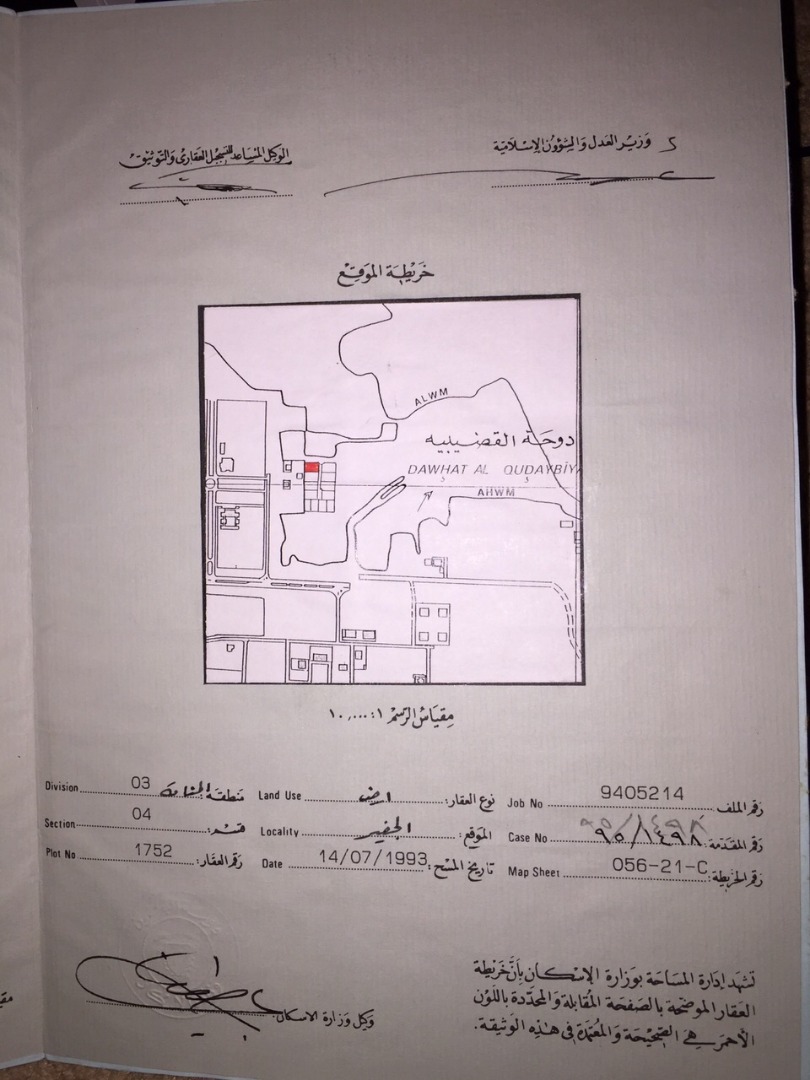 وزير العدل والشؤون الإسلامية
الوكيل المساعد للتسجيل العقاري والتوثيق
خريطة الموقع
ALWM
دوحة القضيبية
DAWHAT AL QUDAYBIY
AHWM
مقياس الرسم ١ : ١٠,٠٠٠
رقم الملف 9405214 Job No نوع العقار: ارض Land Use منطقة المنامة 03 Division
رقم المقدمة: ٩٥/١٤٩٨ Case No الموقع: الجفير Locality قسم: 04 Section
رقم الخريطة: 056-21-C Map Sheet تاريخ المسح: 14/07/1993 Date رقم العقار: 1752 Plot No
تشهد إدارة المساحة بوزارة الإسكان بأن خريطة
العقار الموضحة بالصفحة المقابلة والمحددة باللون
الأحمر هي الصحيحة والمعتمدة في هذه الوثيقة.
وكيل وزارة الاسكان